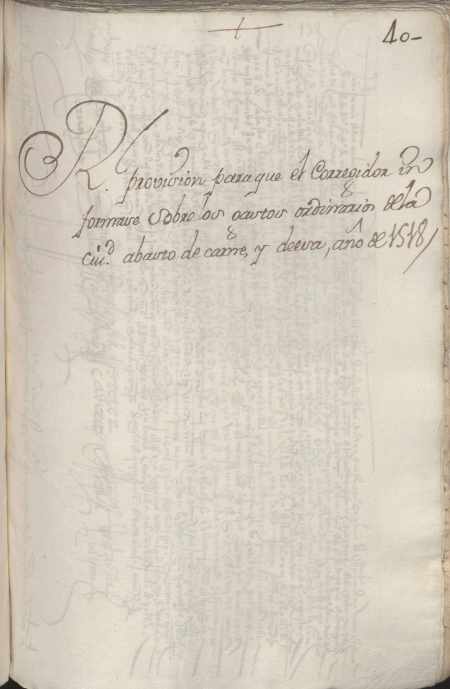 40-
Rl. provision para que el Corregidor in
formase sobre los gastos ordinarios de la
ciud. abasto de carne, y deeva, año de 1518